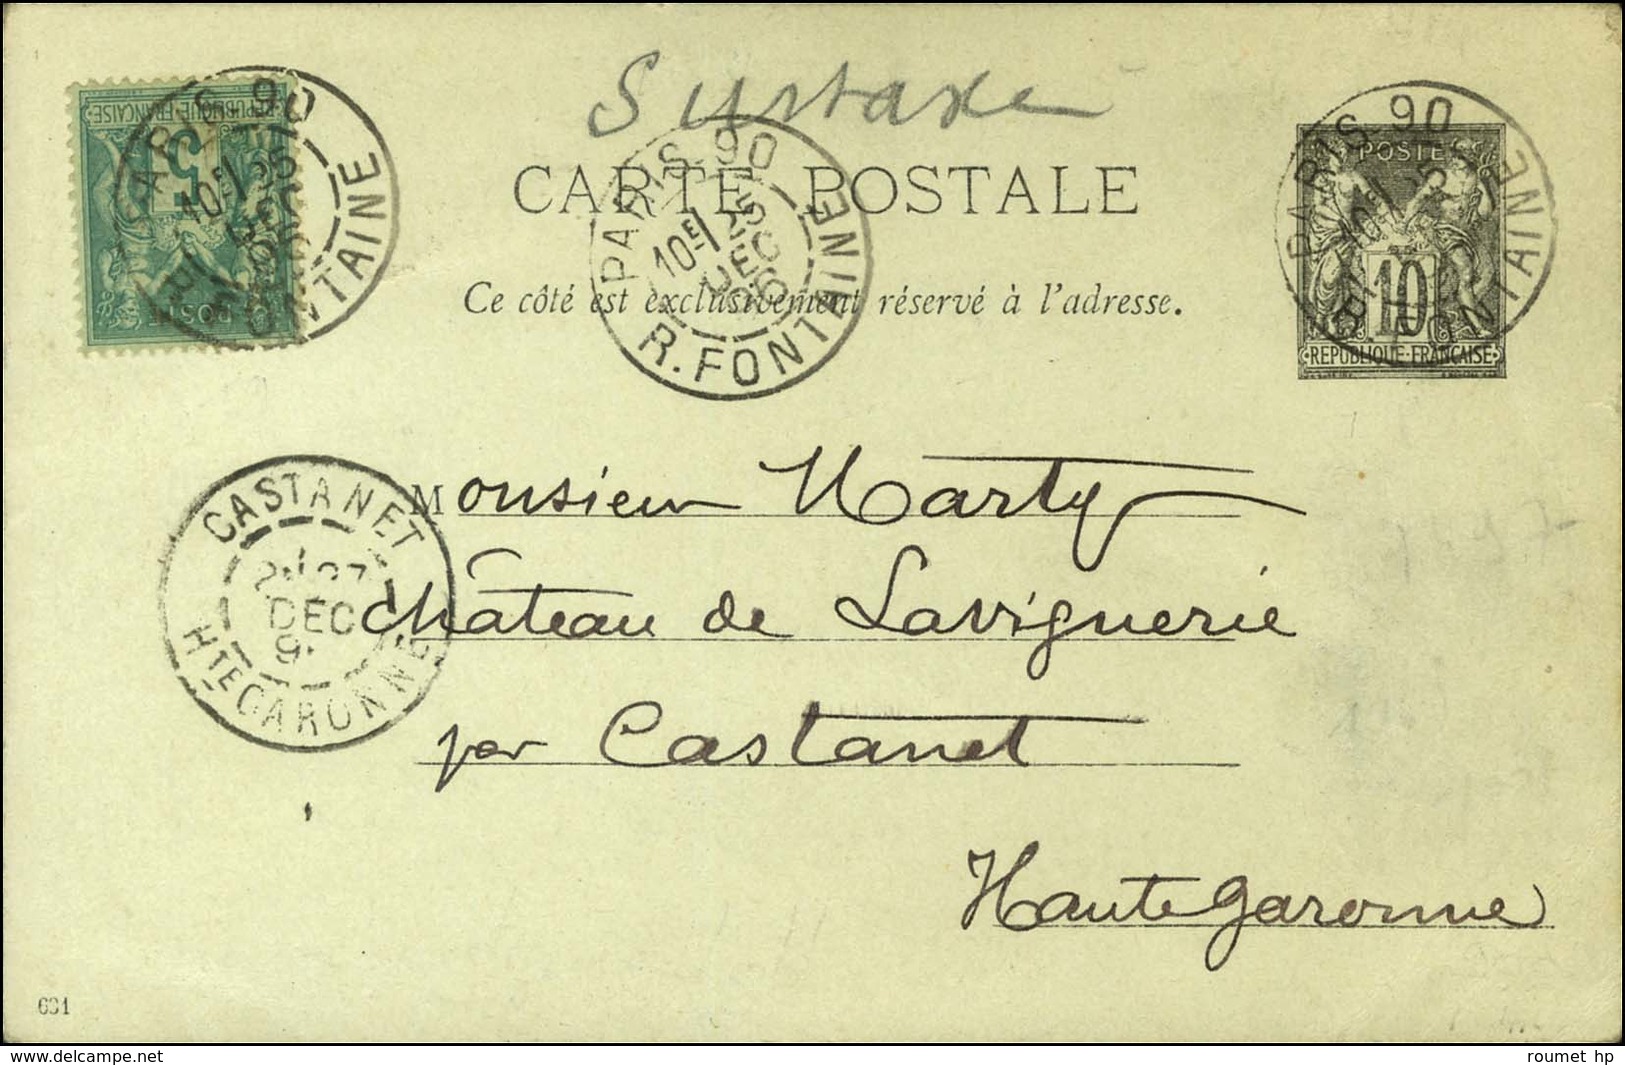 Surtaxe
PARIS-90
10E/ 25
DEC
96
R. FONTAINE
REPUBLIQUE FRANÇAISE
5
POSTE
PARIS-90
10E/ 25
R. FONTAINE
PARIS-90
R. FONTAINE
POSTES
10
RÉPUBLIQUE FRANÇAISE
CARTE POSTALE
Ce côté est exclusivement réservé à l'adresse.
Monsieur Marty
Château de Lavignerie
par Castanet
Haute Garonne
CASTANET
27
DEC
HTE GARONNE
631
delcampe.net
roumet hp